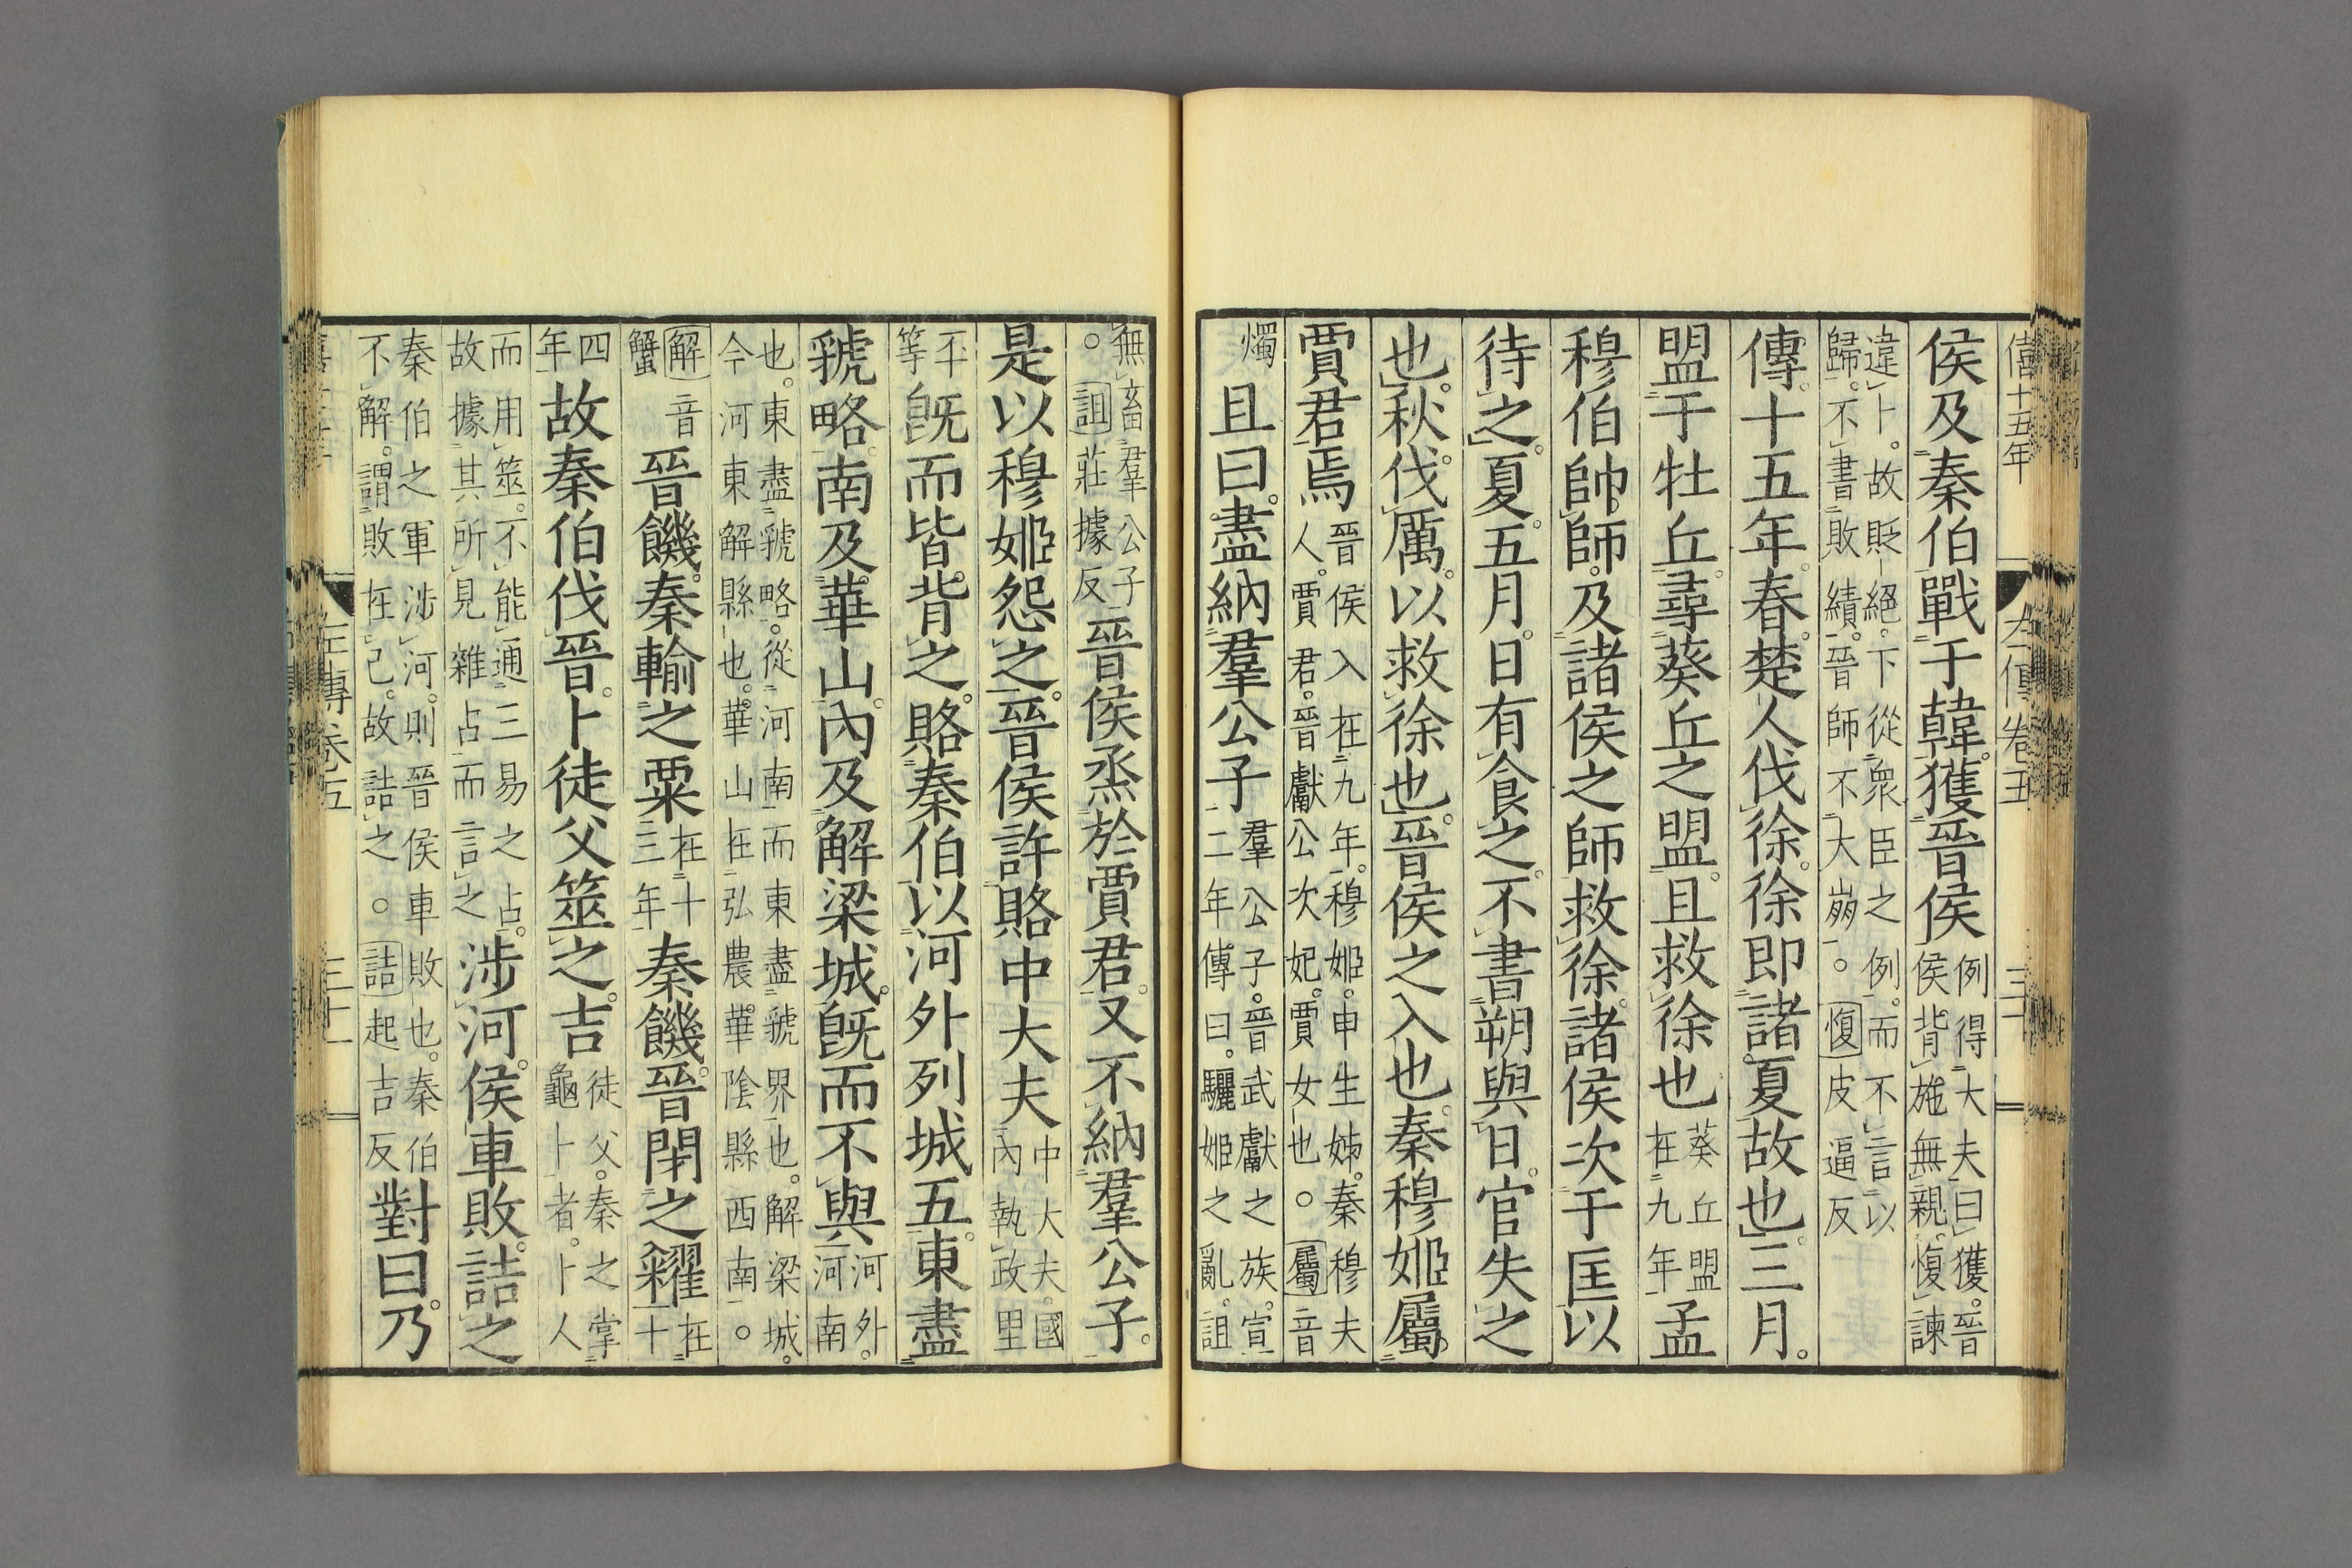 僖十五年
左傳卷五
三十
侯及秦伯戰于韓。獲晉侯例得大夫曰獲。晉侯背施無親。愎諫
違卜。故貶絕。下從衆臣之例。而不言以歸。不書敗績。晉師不大崩。。愎皮逼反
傳。十五年。春。楚人伐徐。徐即諸夏故也。三月。
盟于牡丘。尋葵丘之盟。且救徐也葵丘盟在九年孟
穆伯帥師。及諸侯之師救徐。諸侯次于匡以
待之。夏。五月。日有食之。不書朔與日。官失之
也。秋。伐厲。以救徐也。晉侯之入也。秦穆姬屬
賈君焉晉侯入在九年。穆姬。申生姊。秦穆夫人。賈君。晉獻公次妃。賈女也。屬音
燭且曰。盡納羣公子羣公子。晉武獻之族。宣二年傳曰。驪姬之亂。詛
無畜羣公子。詛莊據反晉侯烝於賈君。又不納羣公子。
是以穆姬怨之。晉侯許賂中大夫中大夫。國內執政里
丕等既而皆背之。賂秦伯以河外列城五。東盡
虢略。南及華山。內及解梁城。既而不與河外。河南
也。東盡虢略。從河南而東盡虢界也。解梁城。今河東解縣也。華山在弘農華陰縣西南。。
解音蟹晉饑。秦輸之粟在十三年秦饑。晉閉之糴在十
四年故秦伯伐晉。卜徒父筮之。吉徒父。秦之掌龜卜者。卜人
而用筮。不能通三易之占。故據其所見雜占而言之涉河。侯車敗。詰之
秦伯之軍涉河。則晉侯車敗也。秦伯不解。謂敗在己。故詰之。。詰起吉反對曰。乃
左傳卷五